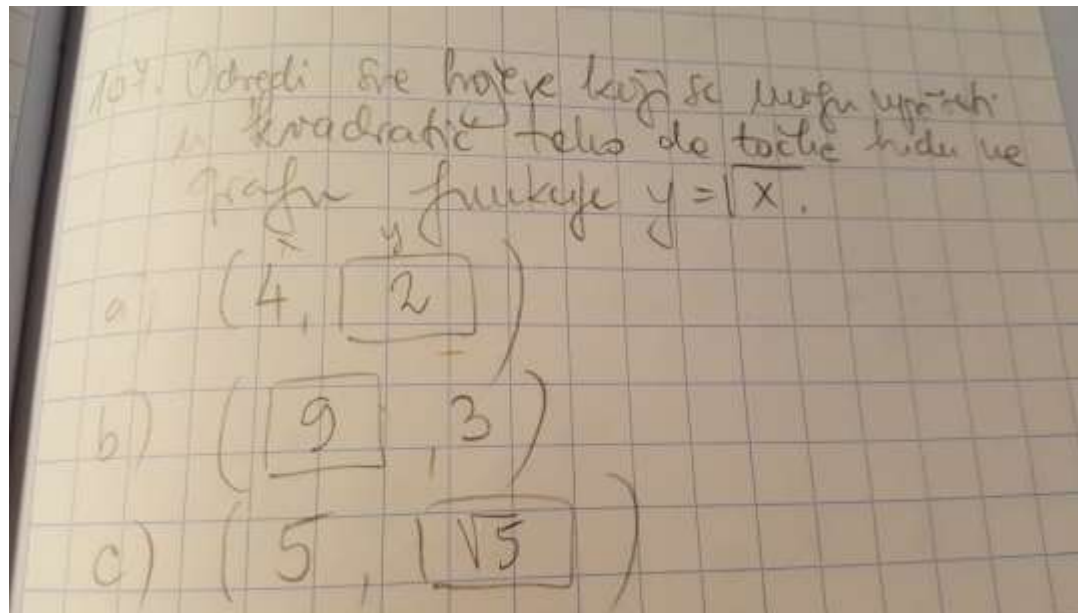 107. Odredi sve brojeve koji se mogu upisati
u kvadratić tako da točke budu na
grafu funkcije y = √x.
x y
a) (4, 2)
b) (9, 3)
c) (5, √5)